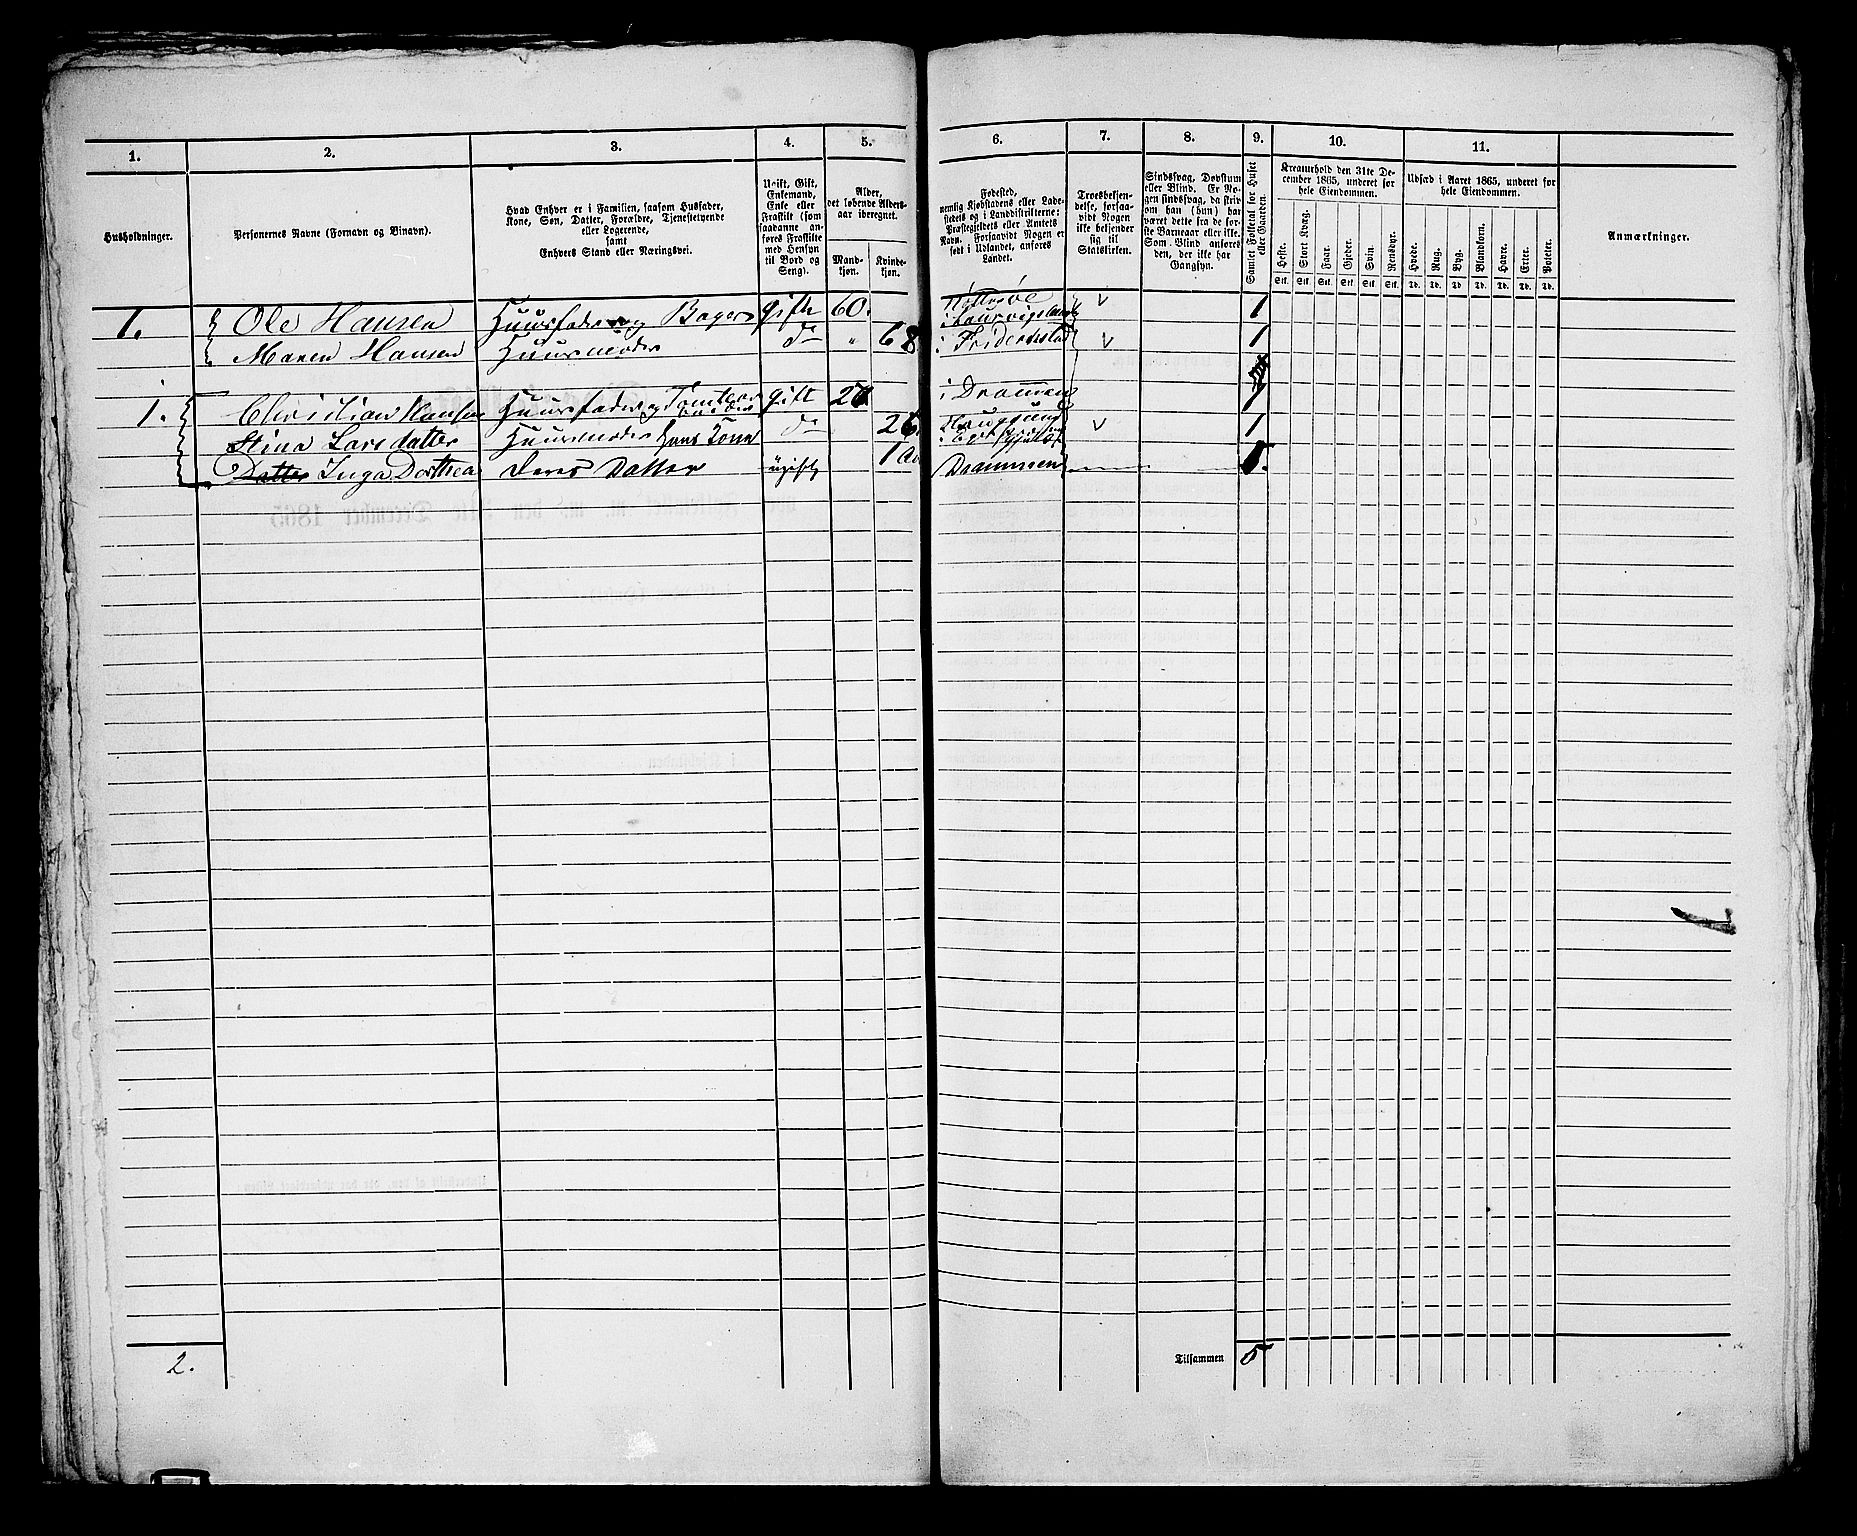 1. 2. 3. 4. 5. 6. 7. 8. 9. 10. 11.
Husholdninger.
Personernes Navne (Fornavn og Tilnavn).
Hvad Enhver er i Familien, saasom Husfader,
Kone, Søn, Datter, Forældre, Tjenestetyende
eller Logerende,
samt
Enhvers Stand eller Næringsvei.
Ugift, Gift,
Enkemand,
Enke eller
Fraskilt (som
saadanne an-
føres Fraskilte
med Hensyn
til Bord og
Seng).
Alder,
det løbende Alders-
aar iberegnet.
Mand-
kjøn.
Kvinde-
kjøn.
Fødested,
nemlig Kjøbstadens eller Lade-
stedets og i Landdistrikterne:
Præstegjeldets eller Annexets
Navn. Forsaavidt Nogen er
født i Udlandet, anføres
Landet.
Troesbekjen-
delse, forsaa-
vidt Nogen
ikke bekjender
sig til
Statskirken.
Sindssvag, Døvstum
eller Blind. Er No-
gen sindssvag, da skriv
om han (hun) har
været dette fra de før-
ste Barneaar eller ikke.
Som Blind anføres
den, der ikke har
Gangsyn.
Samlet Folketal for Huset
eller Gaarden.
Kreaturhold den 31te De-
cember 1865, underet for
hele Eiendommen.
Heste. Stort Kvæg. Faar. Gjeder. Svin. Rensdyr.
Stk. Stk. Stk. Stk. Stk. Stk.
Udsæd i Aaret 1865, underet for
hele Eiendommen.
Hvede. Rug. Byg. Blandkorn. Havre. Erter. Poteter.
Td. Td. Td. Td. Td. Td. Td.
Anmærkninger.
1. Ole Hansen Huusfader og Bager gift 60. 1
Maren Hansen Huusmoder do " 68 i Friderikstad 1
1. Christian Hansen Huusfader og gift i Drammen
Stina Larsdatter Huusmoder Hans Kone do 26 1
Datter Inga Dorthea deres Datter ugift 1 Drammen
2. Tilsammen 5